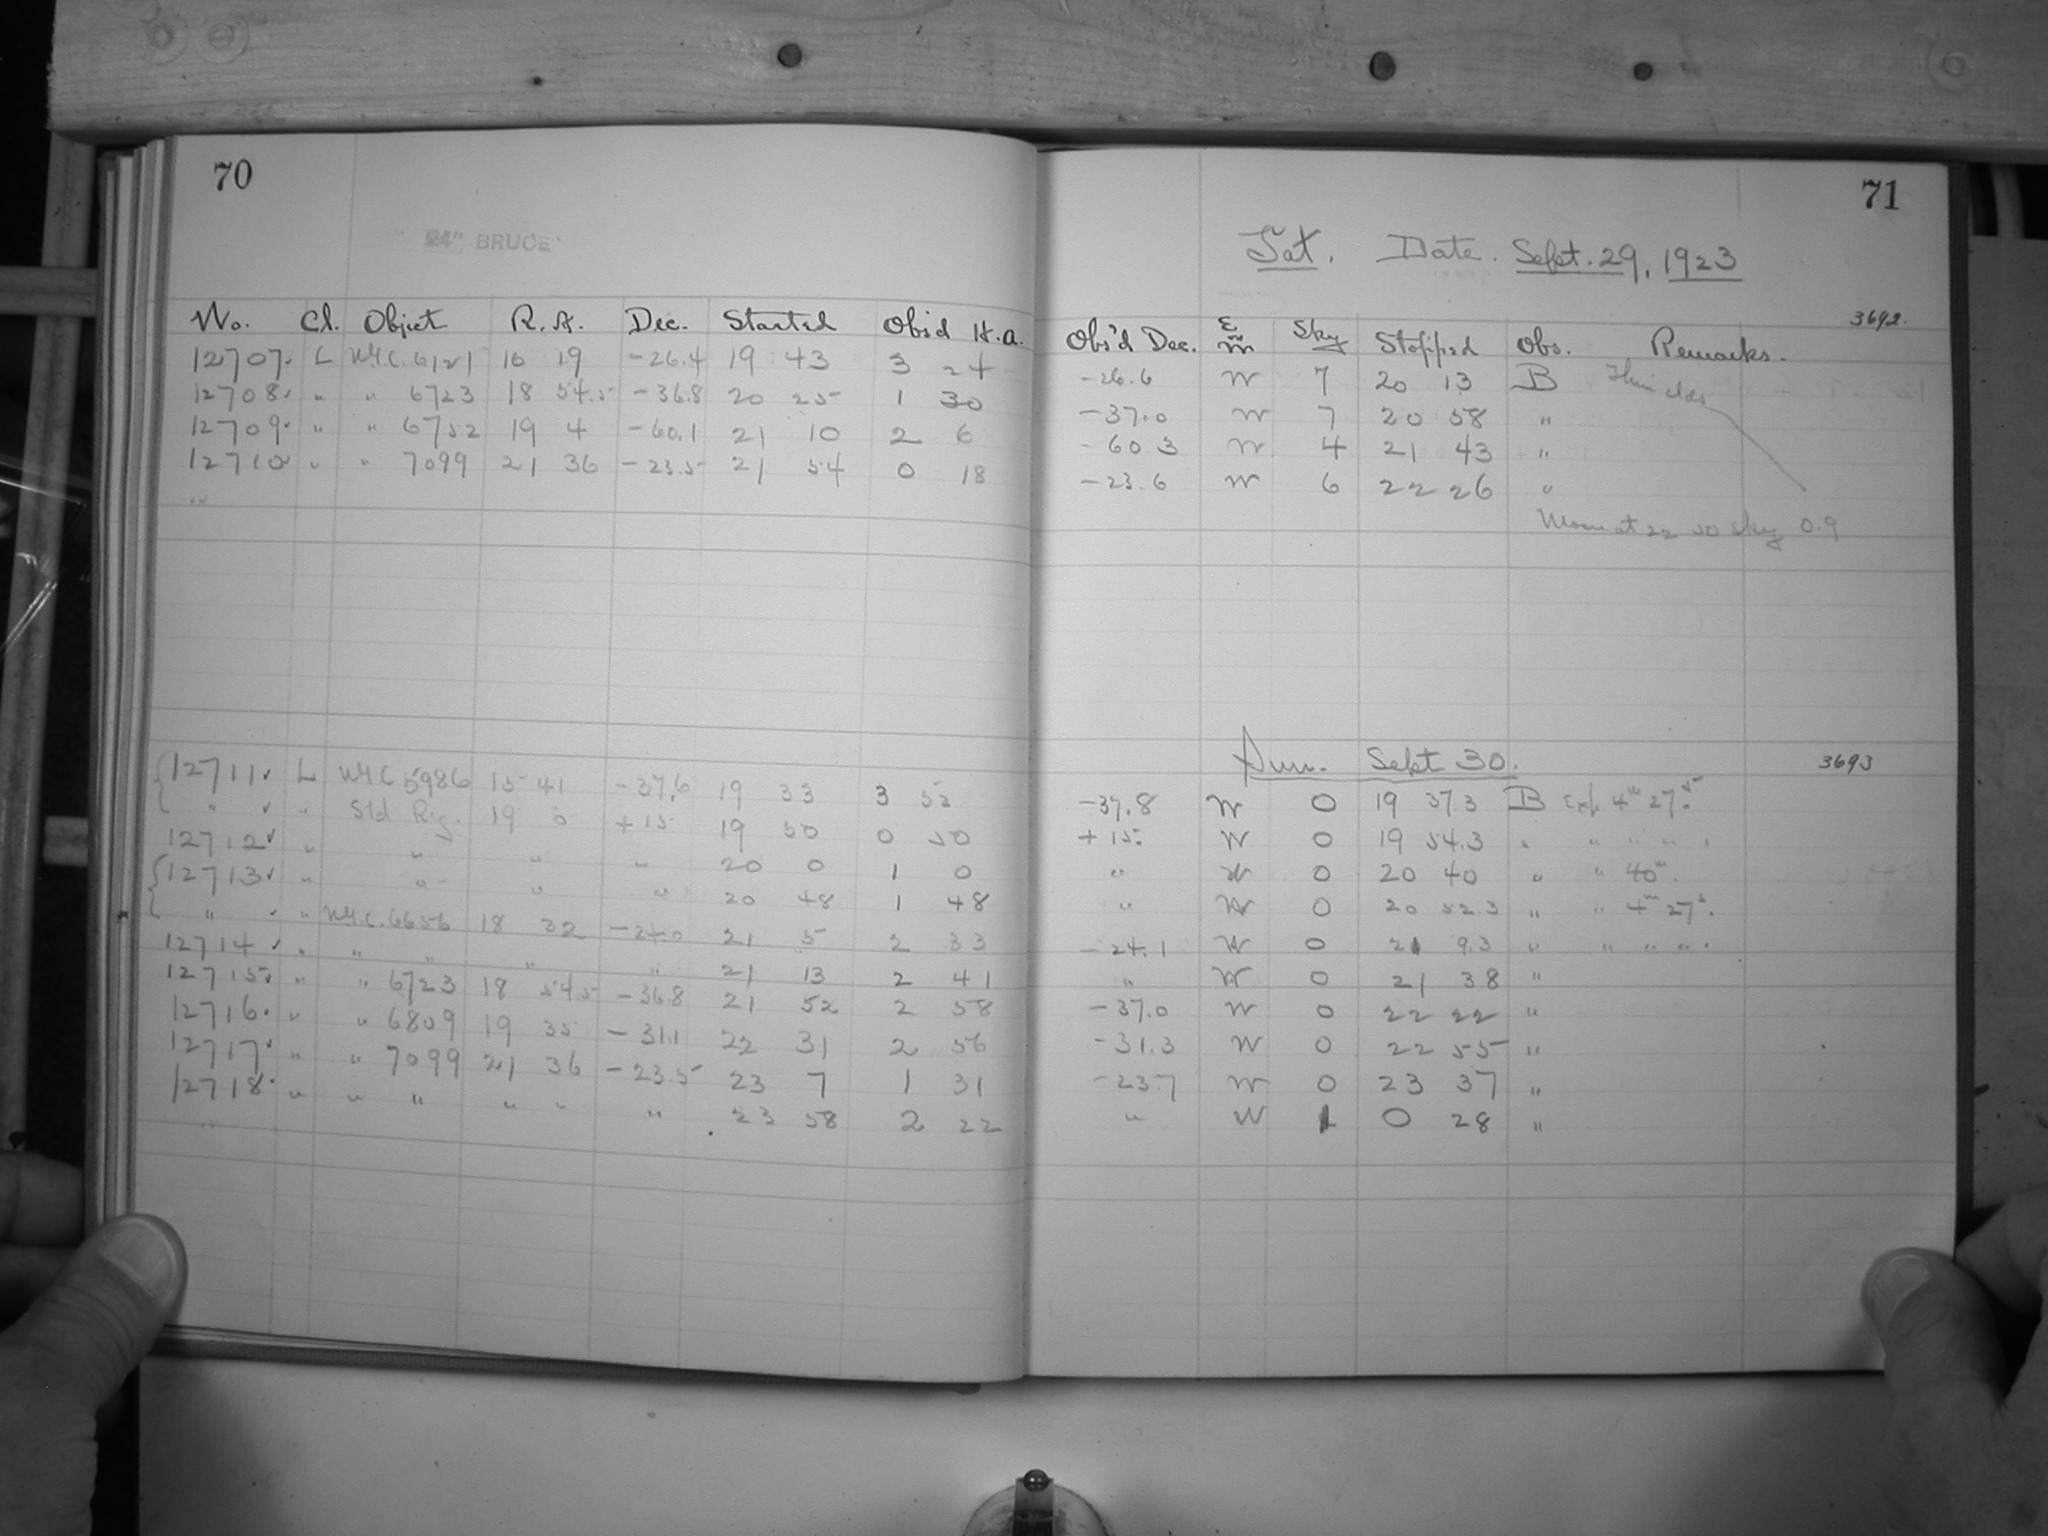 70
24" BRUCE
No. Cl. Object R.A. Dec. Started Obs'd H.A.
12707 L N.G.C. 6121 16 19 -26.4 19 43 3 24
12708 " " 6723 18 54.5 -36.8 20 25 1 30
12709 " " 6752 19 4 -60.1 21 10 2 6
12710 " " 7099 21 36 -23.5 21 54 0 18
"
12711 L N.G.C 5986 15 41 -37.6 19 33 3 52
" " Std Reg. 19 0 +15 19 50 0 50
12712 " " " " 20 0 1 0
12713 " " " " 20 48 1 48
" " N.G.C. 6656 18 32 -24.0 21 5 2 33
12714 " " " " " 21 13 2 41
12715 " " 6723 18 54.5 -36.8 21 52 2 58
12716 " " 6809 19 35 -31.1 22 31 2 56
12717 " " 7099 21 36 -23.5 23 7 1 31
12718 " " " " " " 23 58 2 22
"
71
Sat. Date. Sept. 29, 1923
3692.
Obs'd Dec. E or W Sky Stopped Obs. Remarks.
-26.6 W 7 20 13 B Thin clds
-37.0 W 7 20 58 "
-60.3 W 4 21 43 "
-23.6 W 6 22 26 "
Moon at 22 50 Sky 0.9
Sun. Sept 30. 3693
-37.8 W 0 19 37.3 B Exp. 4m 27s
+15. W 0 19 54.3 " " " "
" W 0 20 40 " " 40m.
" W 0 20 52.3 " " 4m 27s.
-24.1 W 0 21 9.3 " " " " "
" W 0 21 38 "
-37.0 W 0 22 22 "
-31.3 W 0 22 55 "
-23.7 W 0 23 37 "
" W 1 0 28 "